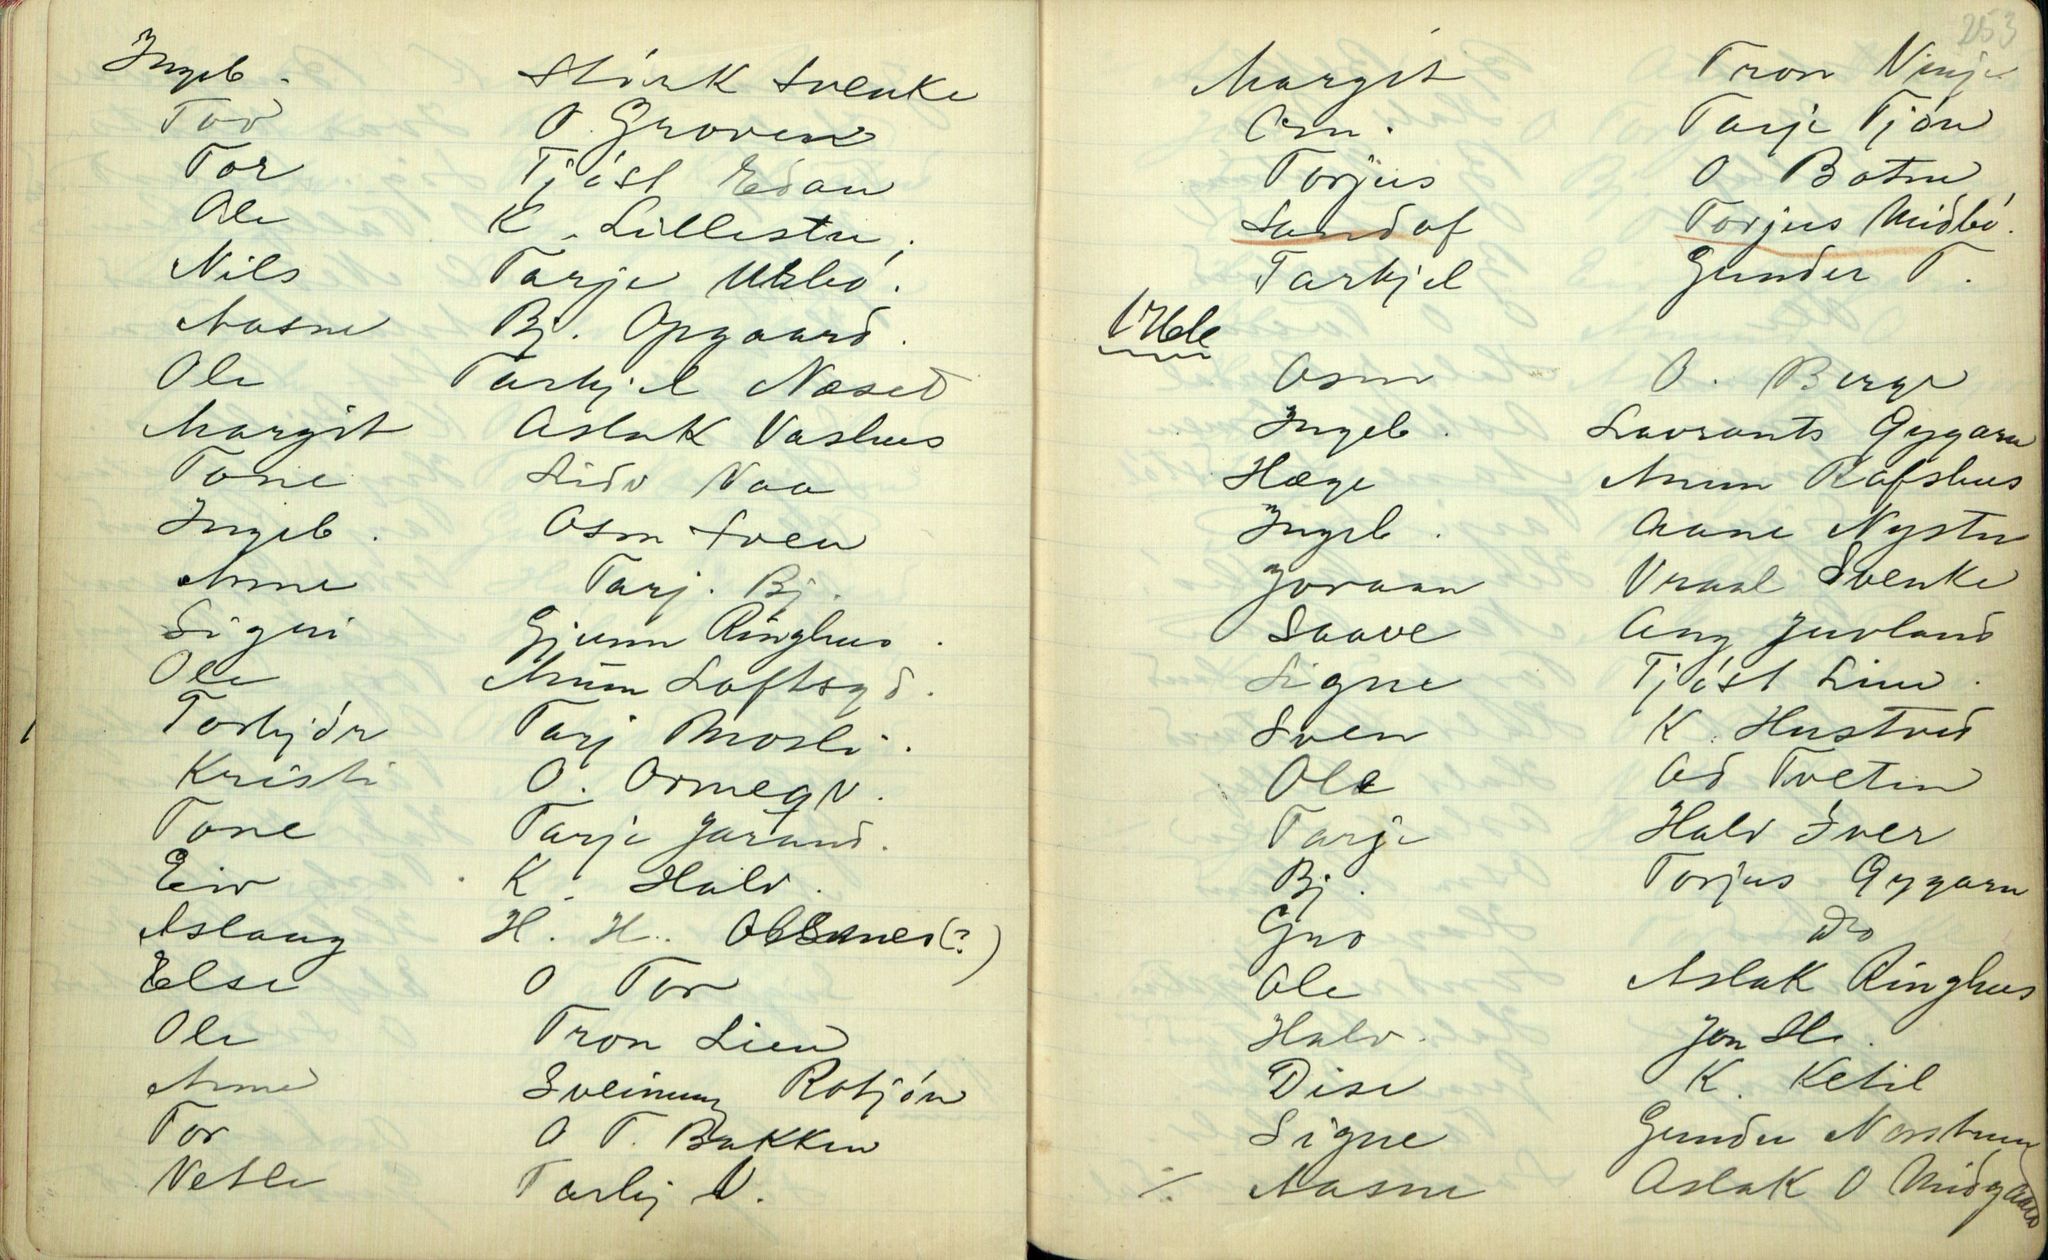 Ingeb. Stórk Svenke
Tov O. Groven
Tor Tjóst Edan
Ole K. Lillestu.
Nils Tarje
Aasne Bj. Opgaard.
Ole Tarkjel Næset
Margit Aslak Vashus
Tone Lidv Naa
Ingeb. Osm Sven
Anne Tarj. Bj.
Siguri Gjunn Ringhus.
Ole Anun Loftsgd.
Torbjór Tarj Mosli.
Kristi O. Ormegv.
Tone Tarje Jarand.
Eiv K. Halv.
Aslaug H. H. (?)
Else O Tor
Ole Tron Lien
Anne Sveinung Rotjón
Tor O T. Bakken
Vetle Tarkj V.
253
Margit Tron Vinje
Orm. Tarje Tjón
Torjus O Botne
Sandof Torjus Midbó.
Tarkjel Gunder T.
Osm O. Berge
Ingeb. Lavrants Gygarn
Hæge Anun Rafshus
Ingeb. Aane Nystu
Joraan Vraal Svenke
Saave Ang Juvland
Signe Tjóst Lien.
Sven K. Hustved
Ole Ad Tveten
Tarje Halv Iver
Bj. Torjus Gygarn
Gro do
Ole Aslak Ringhus
Halv. Jon H.
Dise K. Ketil
Signe Gunder
./. Aasne Aslak O Midgaard